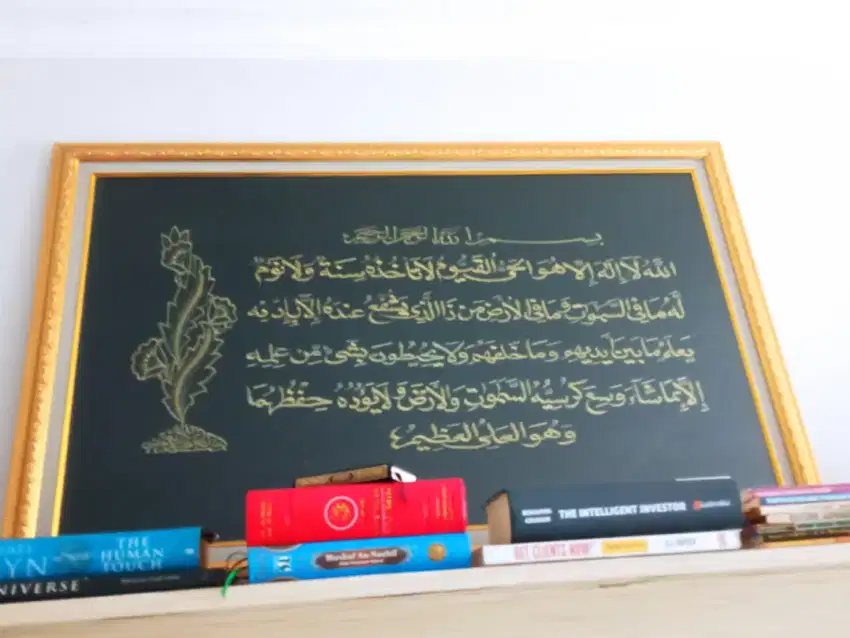 بسم الله الرحمن الرحيم
الله لا إله إلا هو الحي القيوم لا تأخذه سنة ولا نوم
له ما في السموت وما في الأرض من ذا الذي يشفع عنده إلا بإذنه
يعلم ما بين أيديهم وما خلفهم ولا يحيطون بشيء من علمه
إلا بما شاء وسع كرسيه السموت والأرض ولا يؤده حفظهما
وهو العلي العظيم
THE
HUMAN
TOUCH
UNIVERSE
THE INTELLIGENT INVESTOR
GET CLIENTS NOW!